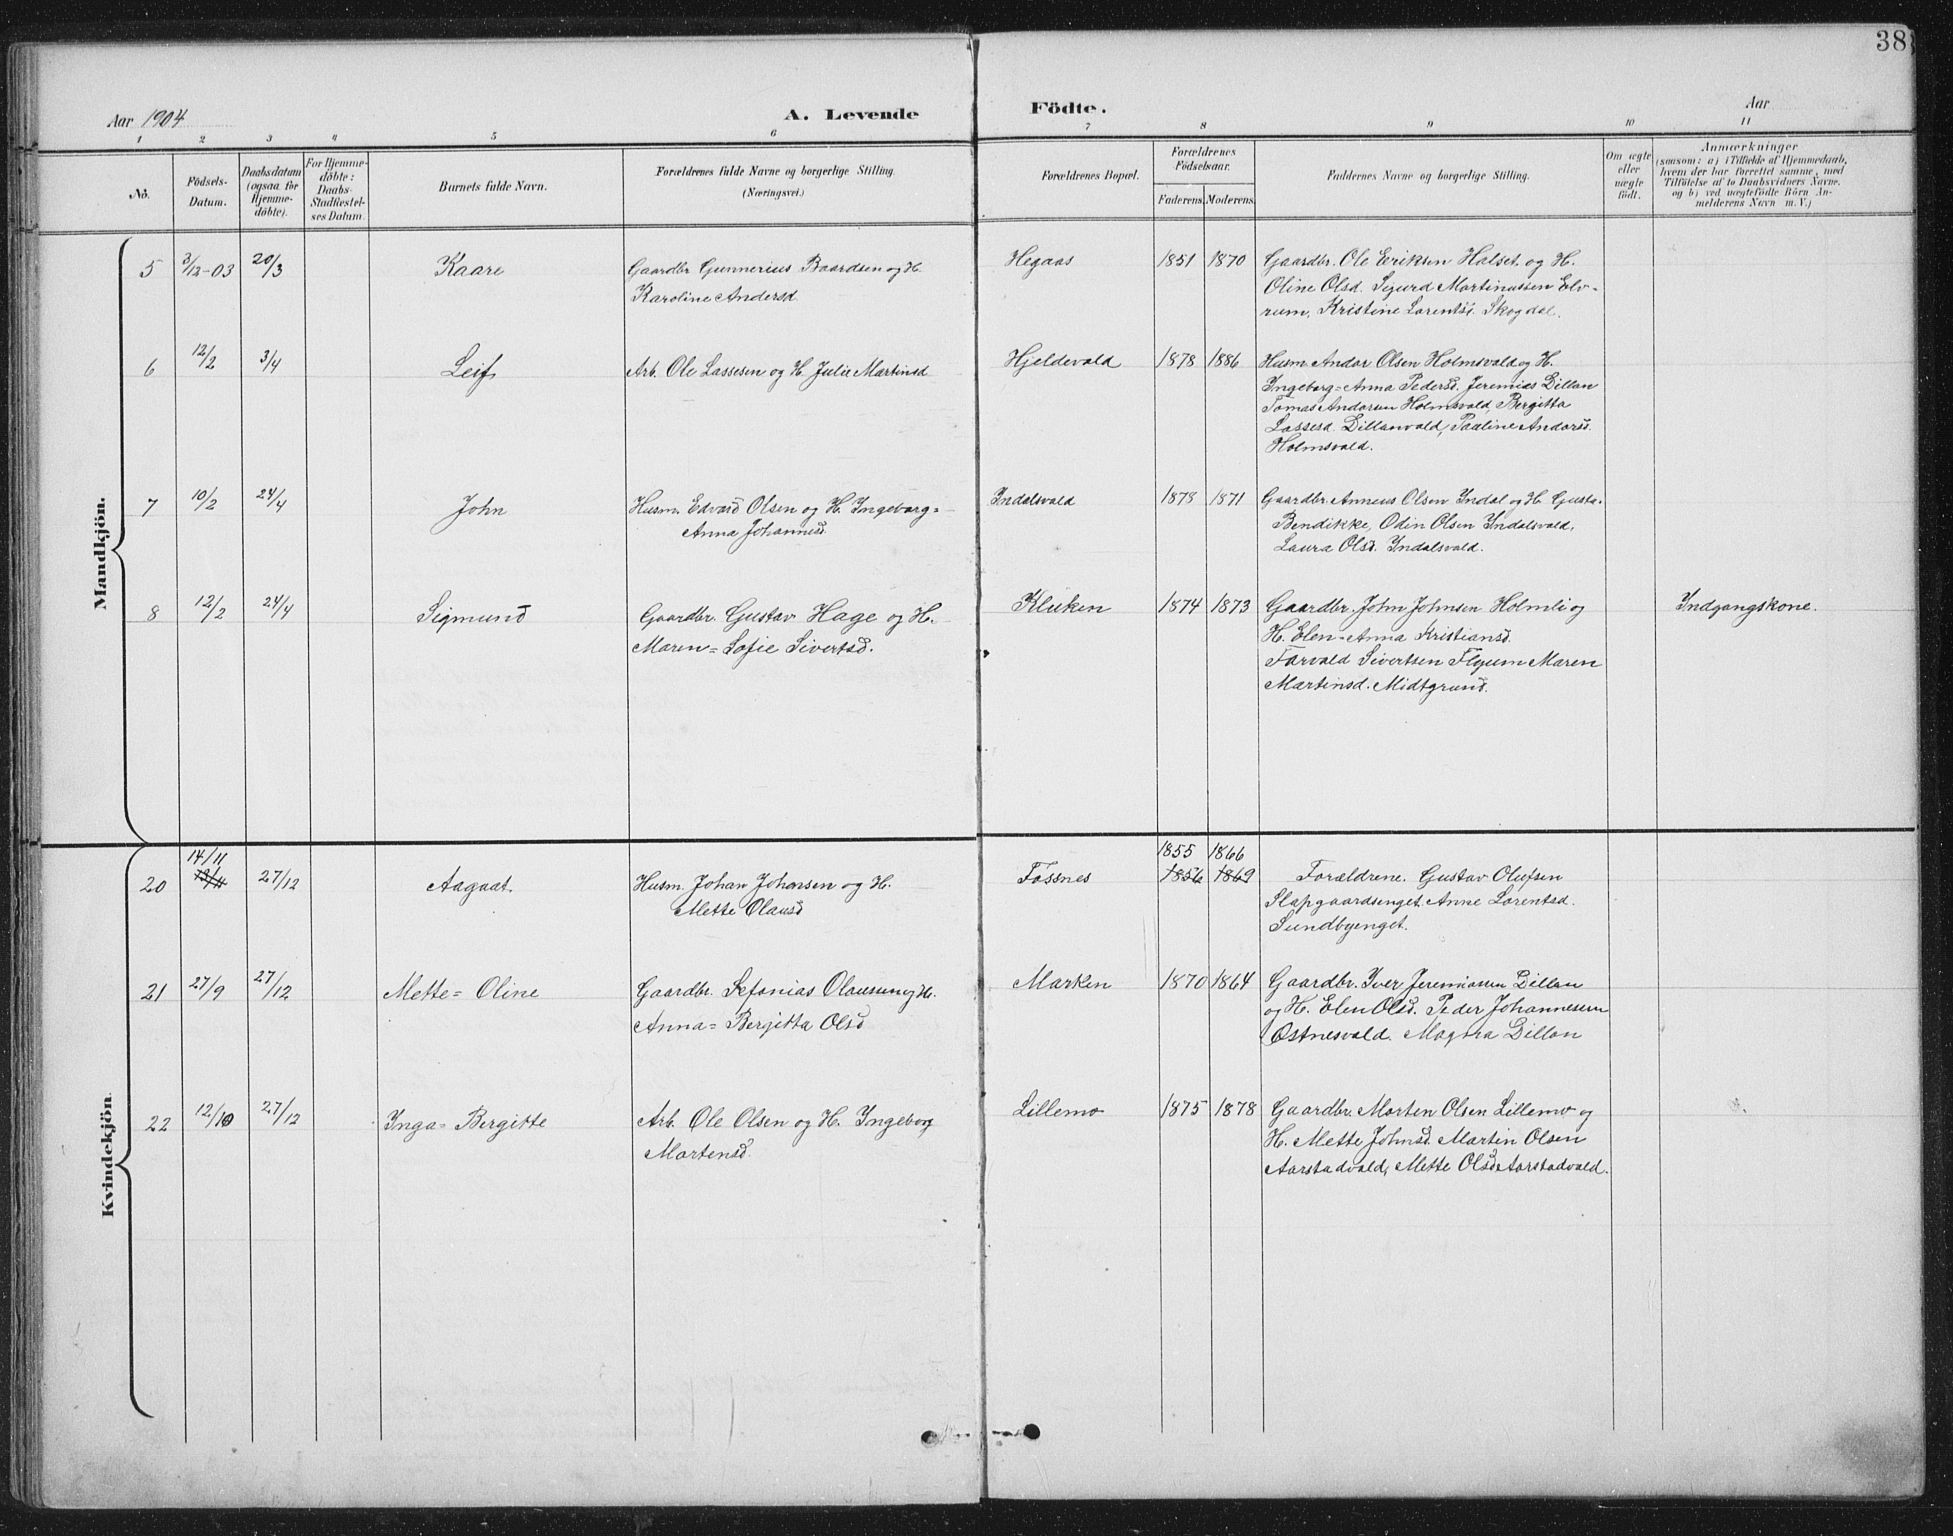 38
Aar 1904
A. Levende
Födte.
Aar
1 2 3 4 5 6 7 8 9 10 11
No.
Födsels-
Datum.
Daabsdatum
(ogsaa for
Hjemme-
döbte).
For Hjemme-
döbte:
Daabs-
Stadfæstel-
ses Datum.
Barnets fulde Navn.
Forældrenes fulde Navne og borgerlige Stilling.
(Næringsvei.)
Forældrenes Bopæl.
Forældrenes
Födselsaar.
Faderens. Moderens.
Faddernes Navne og borgerlige Stilling.
Om ægte
eller
uægte
födt.
Anmærkninger
(saasom: a) i Tilfælde af Hjemmedaab,
hvem der har forrettet samme, med
Tilföielse af to Daabsvidners Navne.
og b) ved uægtefödte Börn An-
melderens Navn m. V.)
Mandkjön.
5 3/12-03 20/3 Kaare
Gaardbr Gunnerius Baardsen og H.
Karoline Andersd.
Hegaas 1851 1870
Gaardbr. Ole Eriksen Halset. og H.
Oline Olsd. Sigurd Martinussen Elv-
rum, Kristine Lorentsd. Skogdal.
6 12/2 3/4 Leif
Arb. Ole Lassesen og H. Julie Martinsd
Hjeldevald 1878 1886
Husm. Andor Olsen Holmsvald og H.
Ingeborg=Anna Pedersd. Jeremias Dillan
Tomas Andorsen Holmsvald, Bergitta
Lassesd. Dillanvald, Pauline Andorsd.
Holmsvald.
7 10/2 24/4 John
Husm. Edvard Olsen og H. Ingeborg=
Anna Johannesd.
Indalsvald 1873 1871
Gaardbr. Anneus Olsen Indal og H. Gusta-
Bendikke, Odin Olsen Indalsvald,
Laura Olsd. Indalsvald.
8 12/2 24/4 Sigmund
Gaardbr. Gustav Hage og H.
Maren=Sofie Sivertsd.
Kluken 1874 1873
Gaardbr. John Johnsen Holmli og
H. Elen=Anna Kristiansd.
Torvald Sivertsen Flyum Maren
Martinsd. Midtgrund.
Indgangskone.
Kvindekjön.
14/11 1855 1866
20 13/11 27/12 Aagaat.
Husm. Johan Johansen og H.
Mette Olausd
Fossnes 1856 1869
Forældrene. Gustav Olufsen
Slapgaardsenget. Anne Lorentsd.
Sundbyenget.
21 27/9 27/12 Mette=Oline
Gaardbr. Sefanias Olausen og H.
Anna=Bergitta Olsd
Marken 1870 1864
Gaardbr. Iver Jeremiasen Dillan
og H. Elen Olsd. Peder Johannesen
Østnesvald. Magna Dillan
22 12/10 27/12 Inga=Bergitte
Arb. Ole Olsen og H. Ingeborg
Mortensd.
Lillemo 1875 1878
Gaardbr. Morten Olsen Lillemo og
H. Mette Johnsd. Martin Olsen
Aarstadvald, Mette Olsd Aarstadvald.